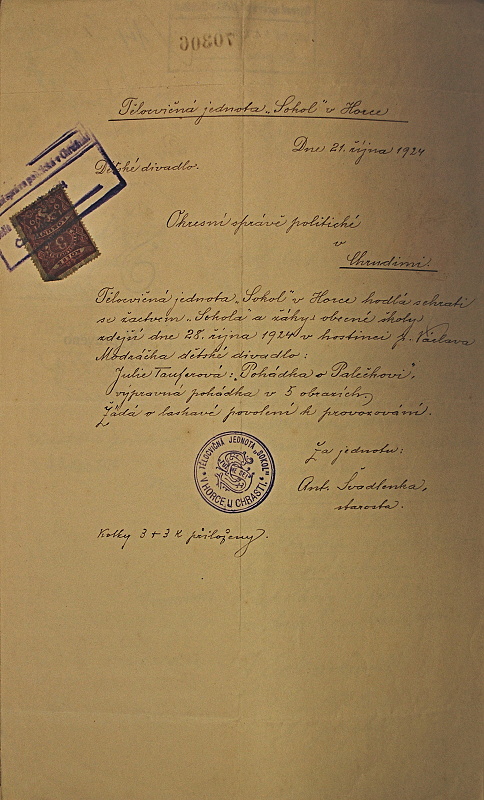 70306
Tělocvičná jednota „Sokol" v Horce
Dne 21. října 1924
Dětské divadlo.
Okresní správě politické
v
Chrudimi.
Tělocvičná jednota „Sokol" v Horce hodlá sehrati
se žactvem „Sokola" a žáky obecné školy
zdejší dne 28. října 1924 v hostinci p. Václava
Modráčka dětské divadlo:
Julie Tauferová: „Pohádka o Palečkovi",
výpravná pohádka v 5 obrazích,
Žádá o laskavé povolení k provozování.
Za jednotu:
Ant. Švadlenka,
starosta.
TĚLOCVIČNÁ JEDNOTA „SOKOL"
V HORCE U CHRASTI.
Kolky 3 + 3 K přiloženy.